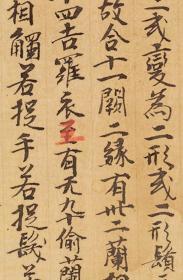 二或變為二形或二形鬚
故合十一闕二緣有卅二蘭
四吉羅衣至有无九偷蘭
相觸若捉手若捉髮若